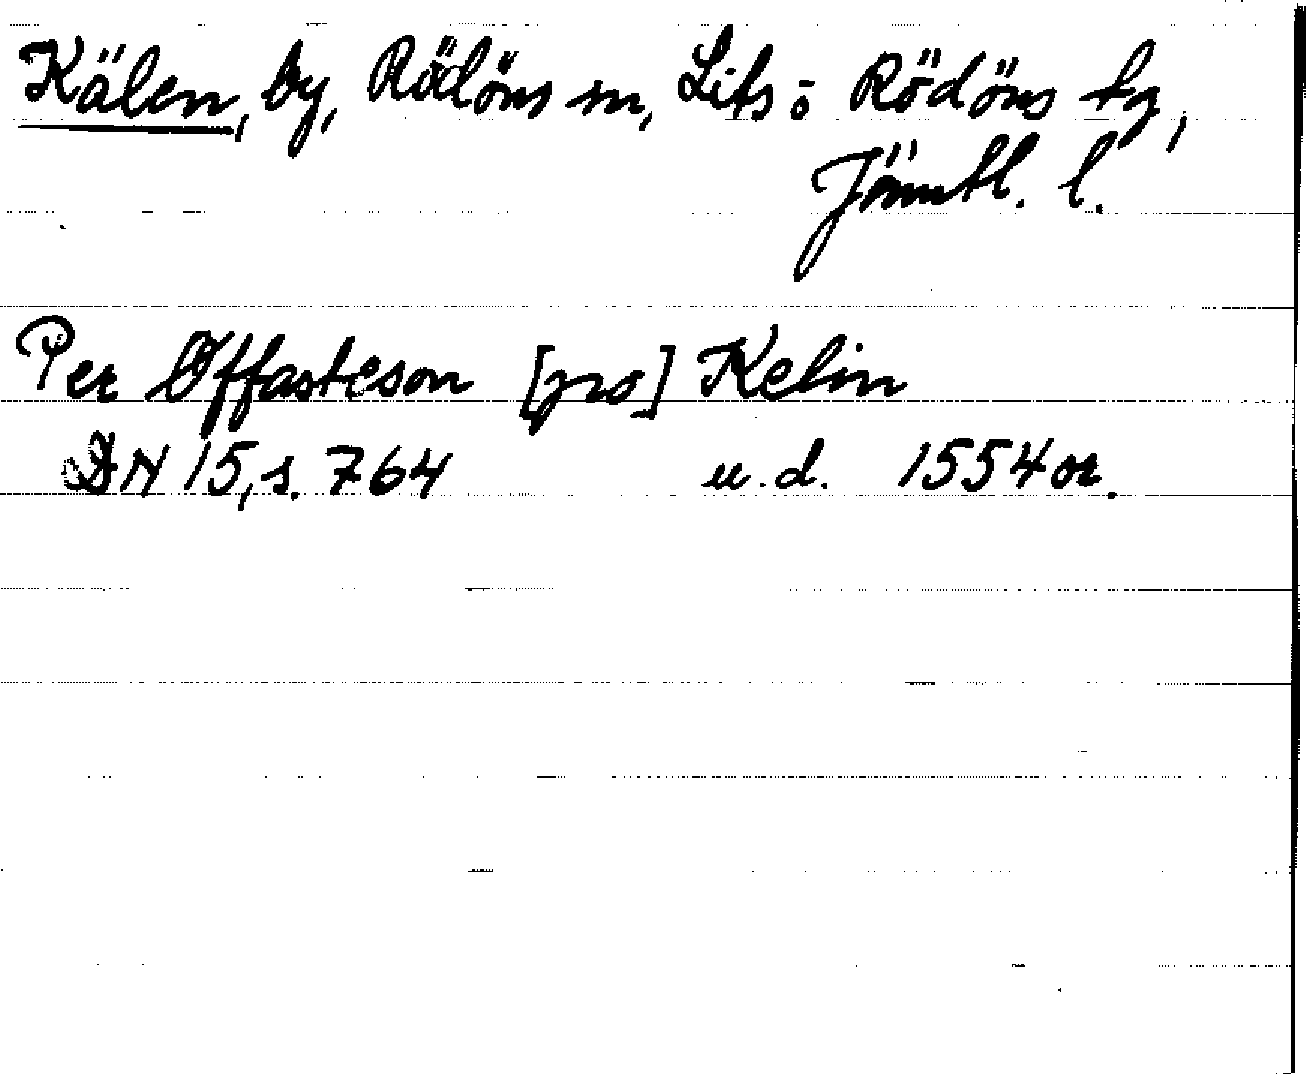 Kälen, by, Rödöns sn, Lits o Rödöns tg,
Jämtl. l.
Per Offasteson [prs] Kelin
DN 15, s. 764 u.d. 1554 or.